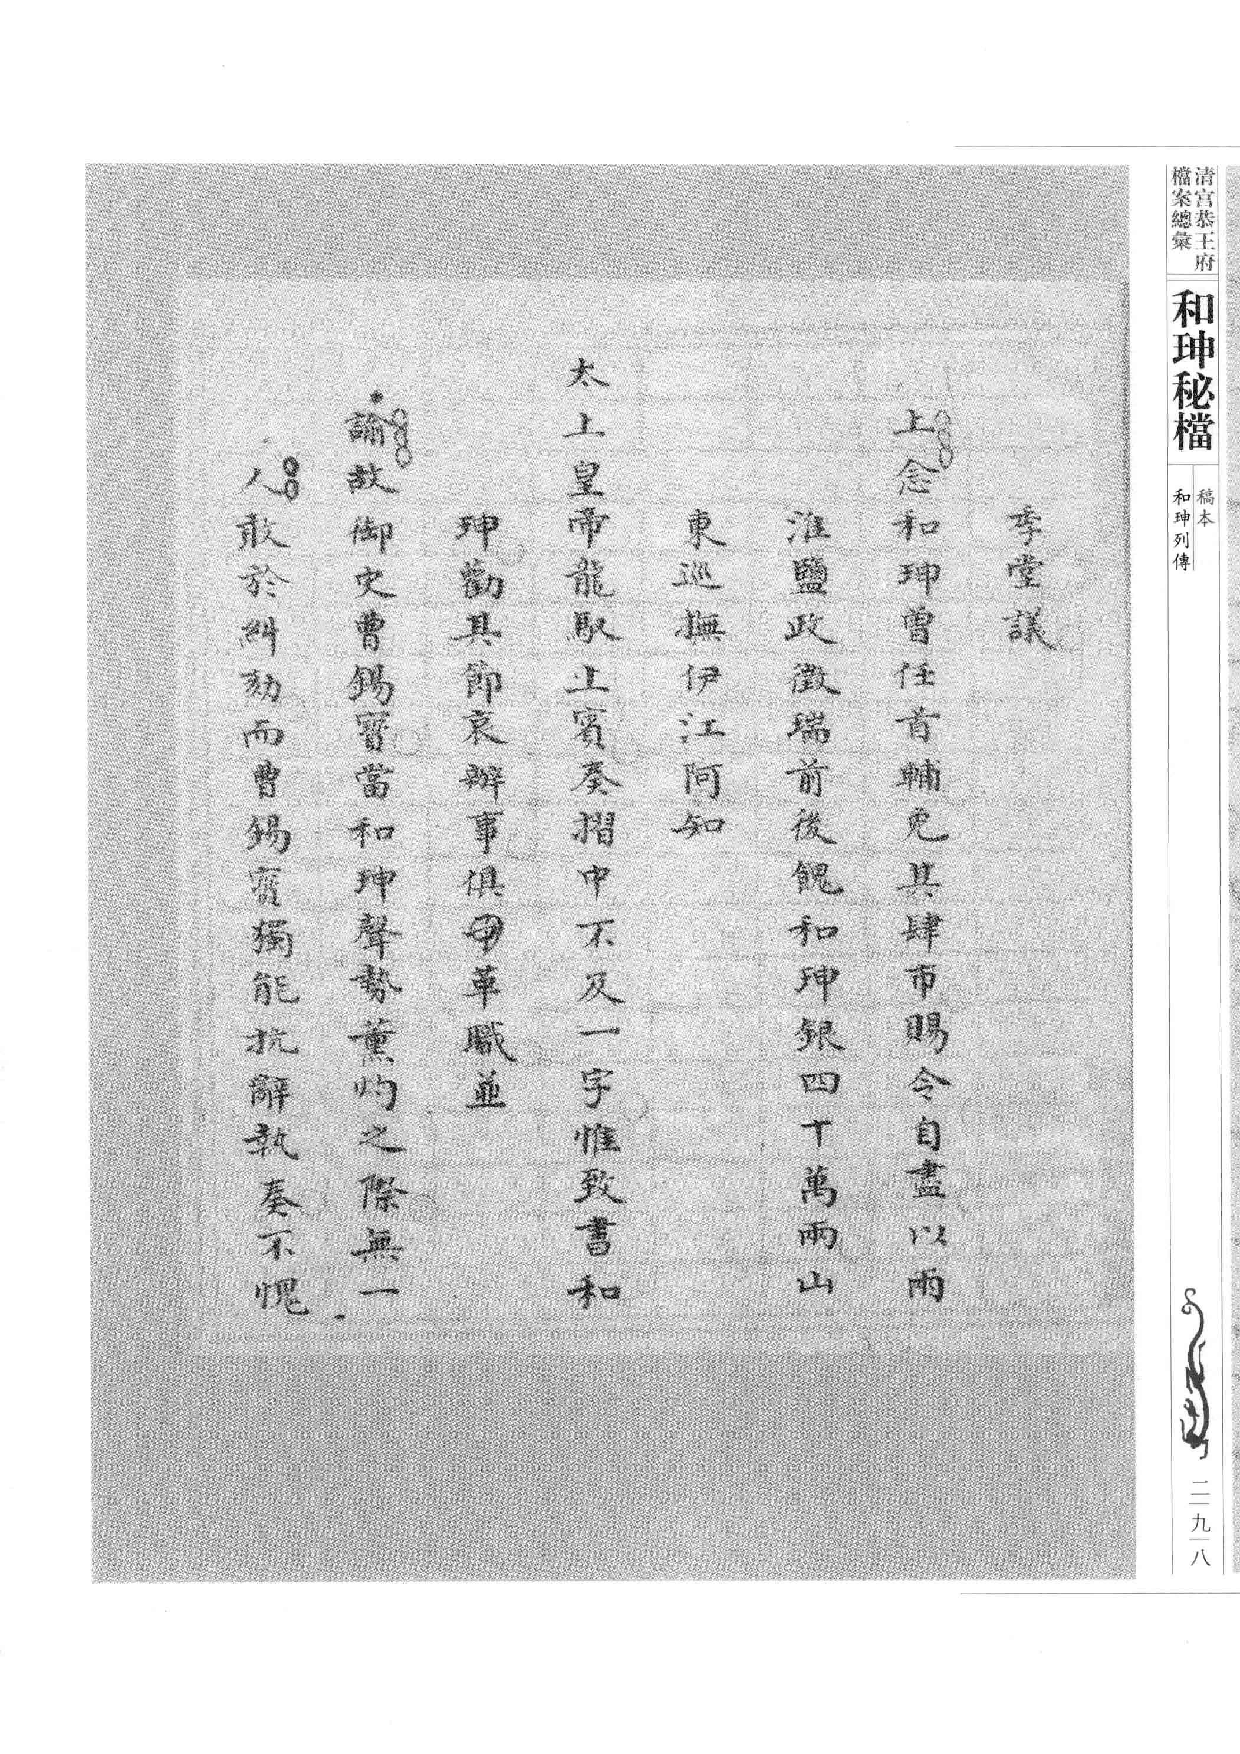 清宮恭王府
檔案總彙
和珅秘檔
稿本
和珅列傳
二九八
季堂議
上念和珅曾任首輔免其肆市賜令自盡以兩
淮鹽政徵瑞前後餽和珅銀四十萬兩山
東巡撫伊江阿知
太上皇帝龍馭上賓奏摺中不及一字惟致書和
珅勸其節哀辦事俱革職並
諭故御史曹錫寶當和珅聲勢薰灼之際無一
人敢於糾劾而曹錫寶獨能抗辭執奏不愧